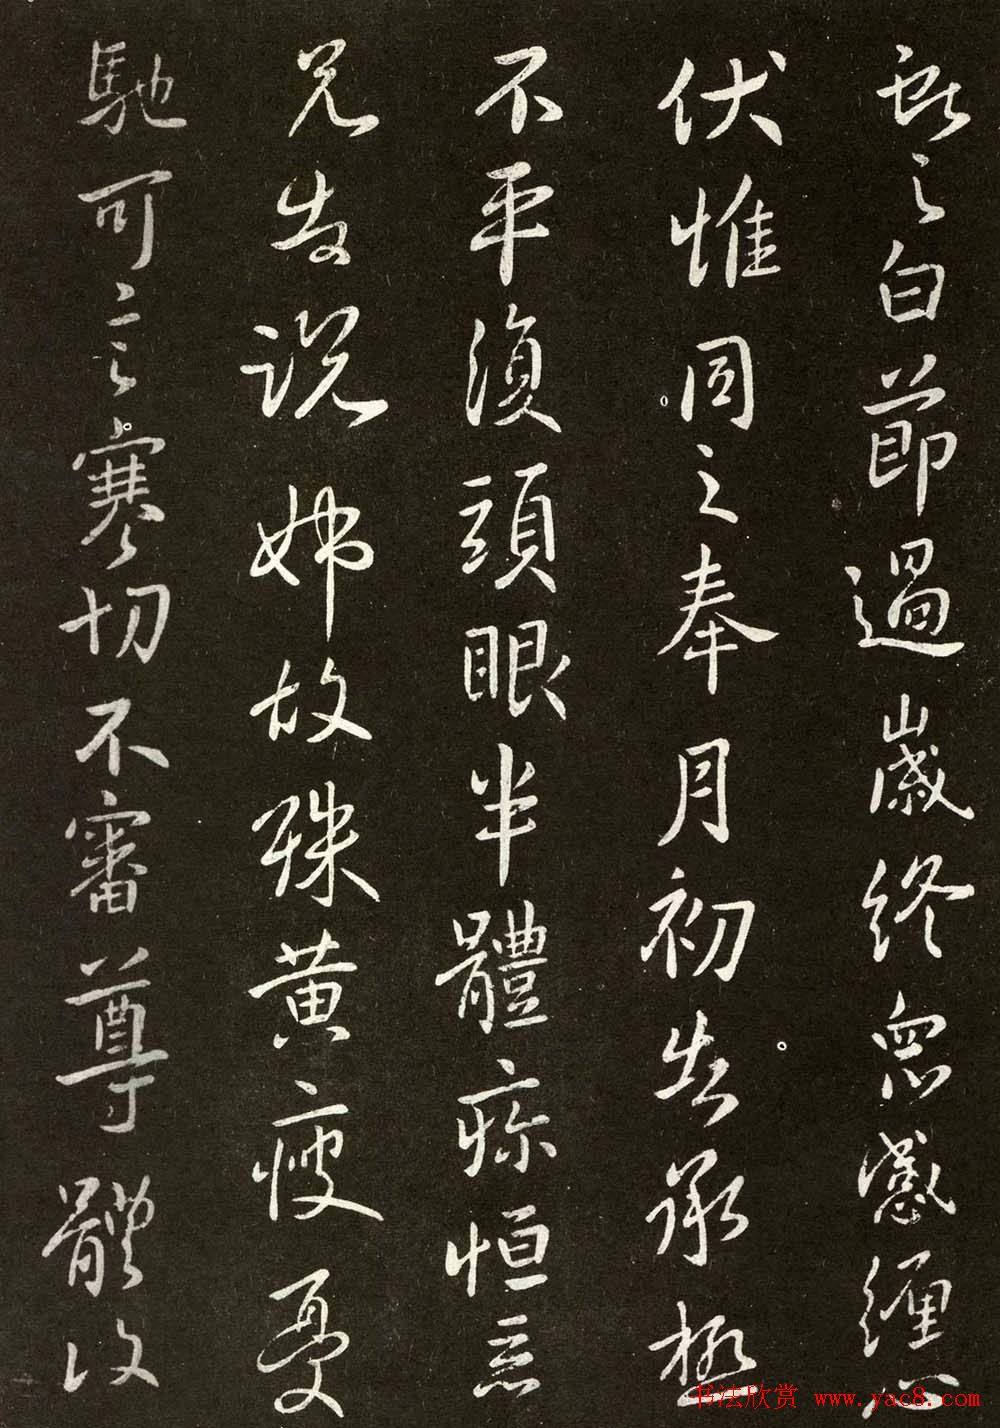 獻之白節過歲終眾感纏心
伏惟同之奉月初告承極
不平復頭眼半體疹恒惡
兄告說姊故殊黃瘦憂
馳可言寒切不審尊體復
书法欣赏 www.yac8.com